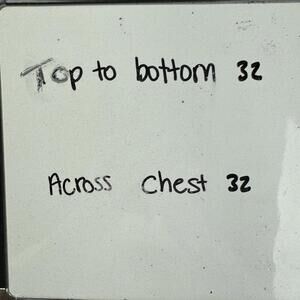 Top to bottom 32
Across chest 32